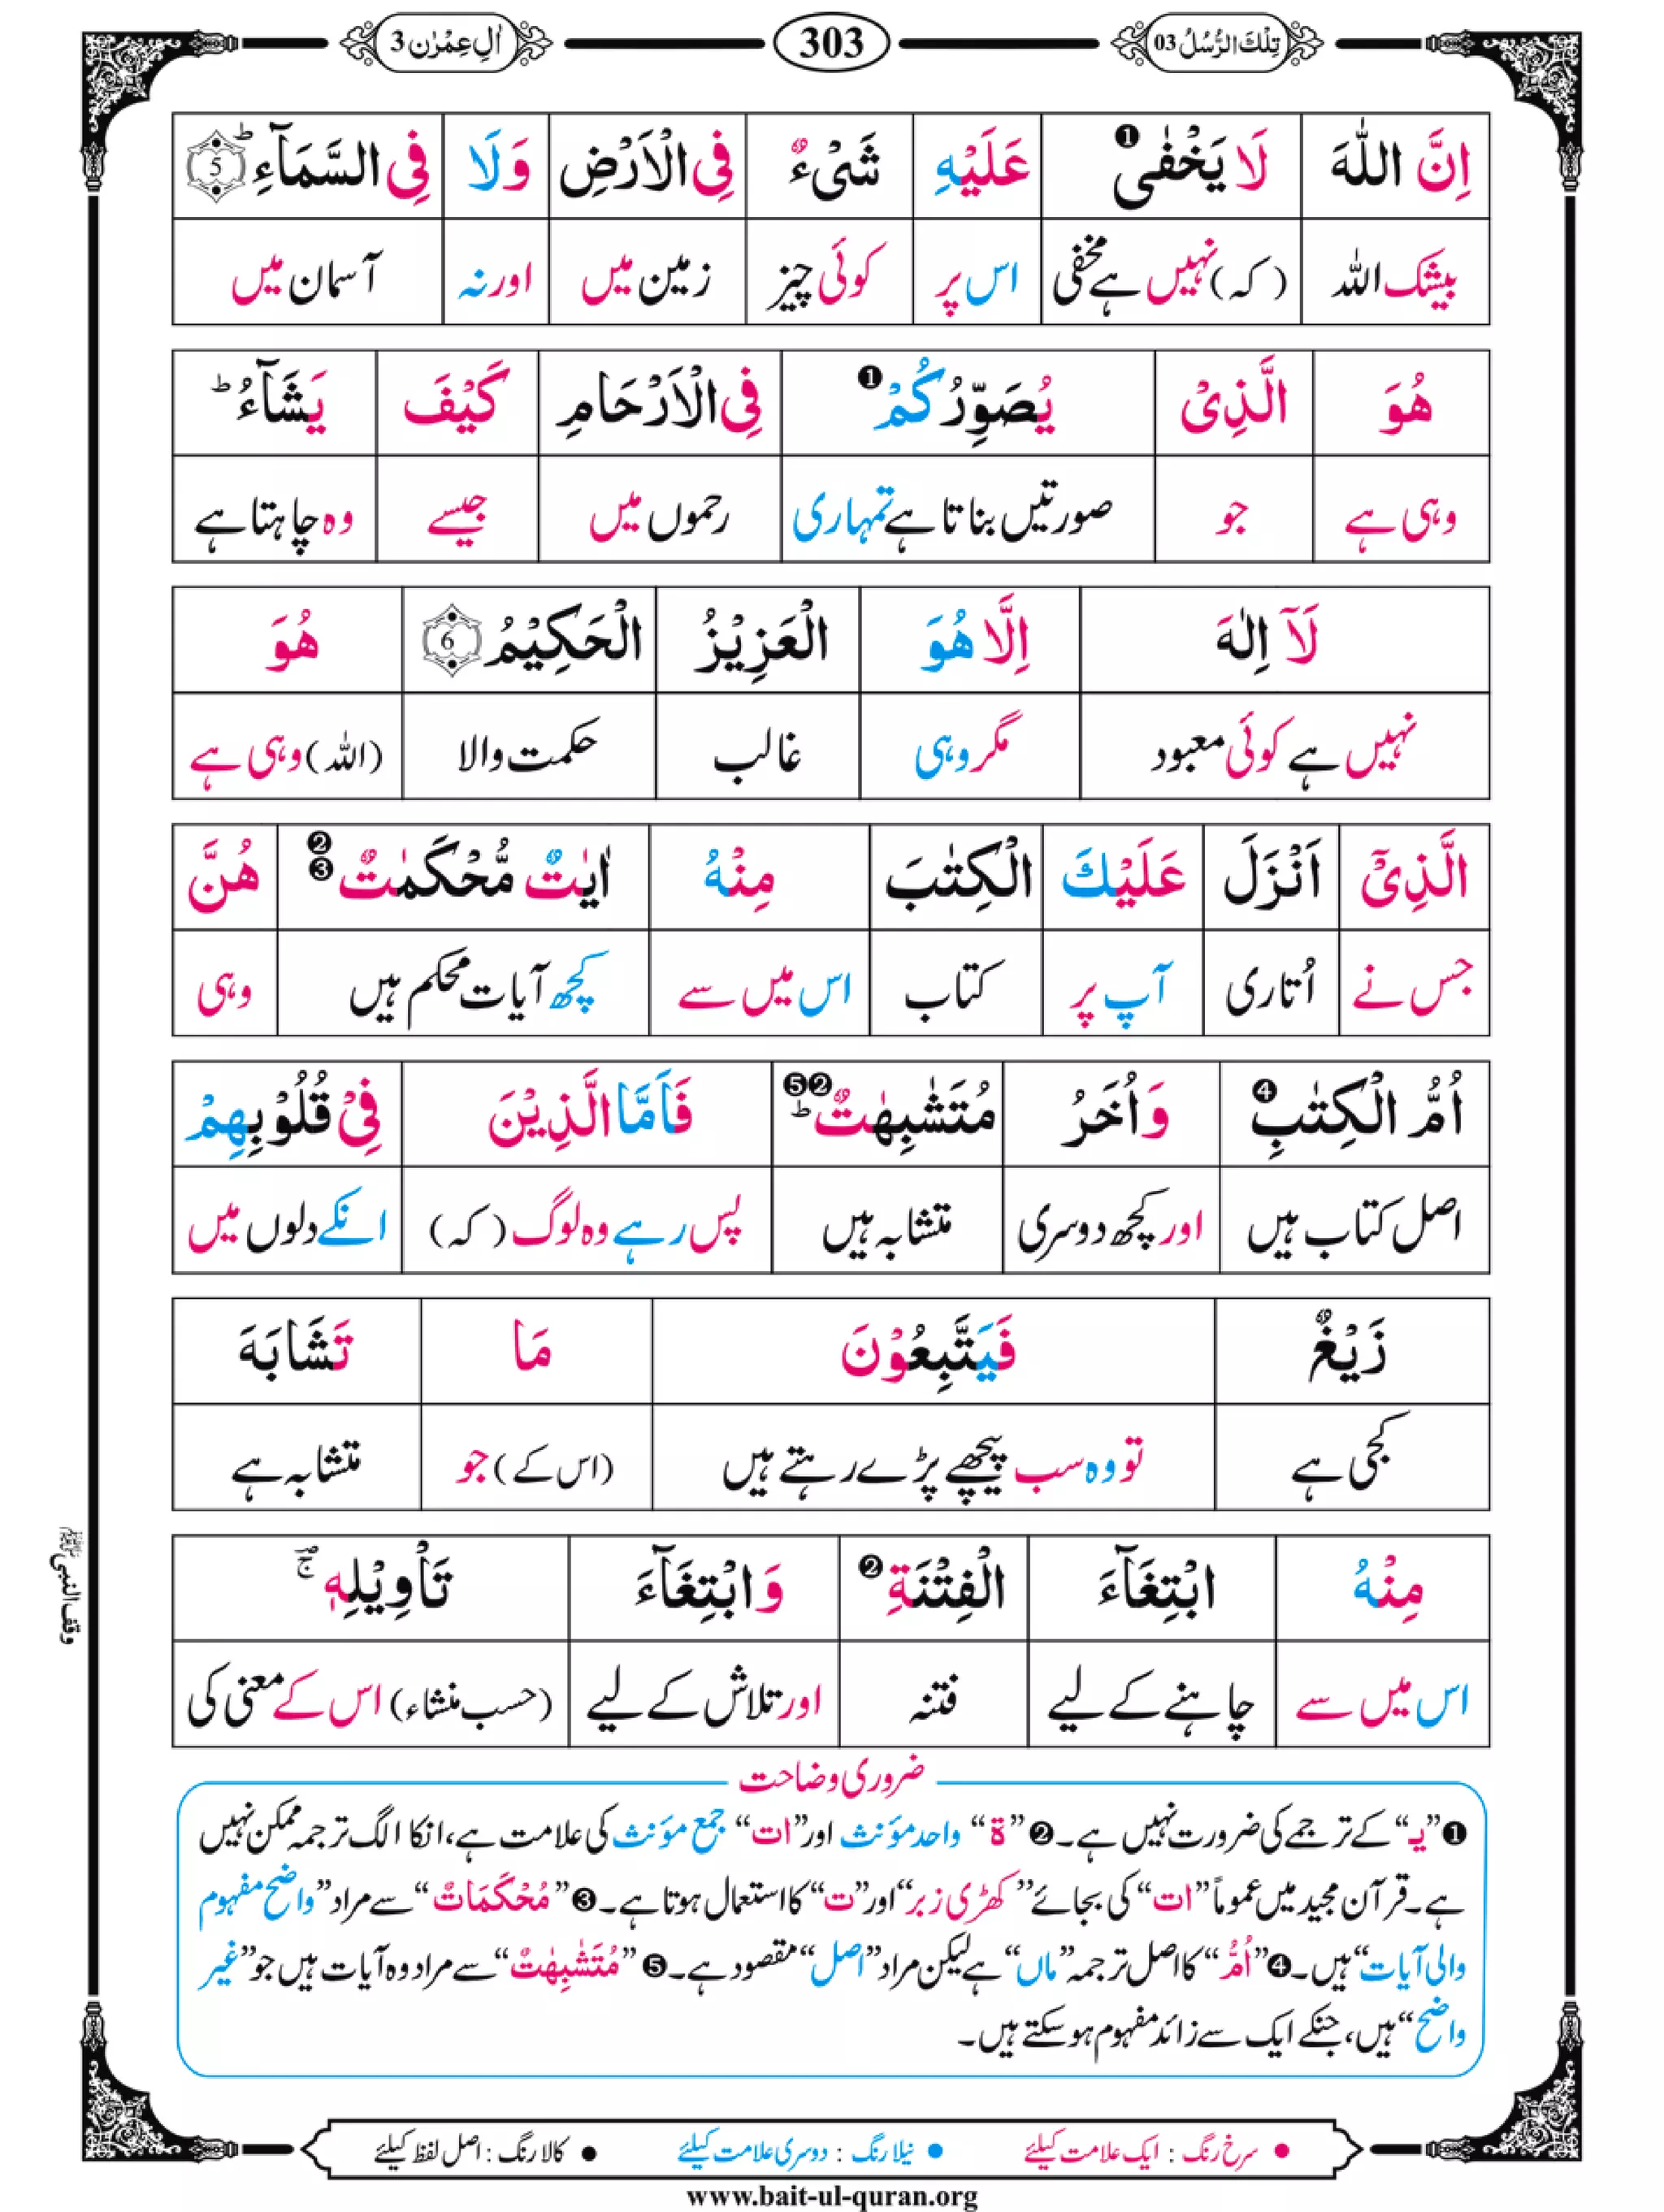 تِلْكَ الرُّسُلُ 03 303 اٰلِ عِمْرٰن 3
اِنَّ اللّٰهَ لَا يَخْفٰى ❶ عَلَيْهِ شَىْءٌ فِى الْاَرْضِ وَلَا فِى السَّمَآءِ ؕ 5
بیشک اللہ (کہ) نہیں ہے مخفی اس پر کوئی چیز زمین میں اور نہ آسمان میں
هُوَ الَّذِىْ يُصَوِّرُكُمْ ❶ فِى الْاَرْحَامِ كَيْفَ يَشَآءُ ؕ
وہی ہے جو صورتیں بناتا ہے تمہاری رحموں میں جیسے وہ چاہتا ہے
لَاۤ اِلٰهَ اِلَّا هُوَ الْعَزِيْزُ الْحَكِيْمُ 6 هُوَ
نہیں ہے کوئی معبود مگر وہی غالب حکمت والا (اللہ) وہی ہے
الَّذِىْۤ اَنْزَلَ عَلَيْكَ الْكِتٰبَ مِنْهُ اٰيٰتٌ مُّحْكَمٰتٌ ❷ ❸ هُنَّ
جس نے اُتاری آپ پر کتاب اس میں سے کچھ آیات محکم ہیں وہی
اُمُّ الْكِتٰبِ ❹ وَاُخَرُ مُتَشٰبِهٰتٌ ؕ ❷❺ فَاَمَّا الَّذِيْنَ فِىْ قُلُوْبِهِمْ
اصل کتاب ہیں اور کچھ دوسری متشابہ ہیں پس رہے وہ لوگ (کہ) انکے دلوں میں
زَيْغٌ فَيَتَّبِعُوْنَ مَا تَشَابَهَ
کجی ہے تو وہ سب پیچھے پڑے رہتے ہیں (اس کے) جو متشابہ ہے
مِنْهُ ابْتِغَآءَ الْفِتْنَةِ ❷ وَابْتِغَآءَ تَاْوِيْلِهٖ ۚ
اس میں سے چاہنے کے لیے فتنہ اور تلاش کے لیے (حسب منشاء) اس کے معنی کی
وقف النبی ﷺ
ضروری وضاحت
❶ ”یـ“ کے ترجمے کی ضرورت نہیں ہے۔ ❷ ”ة“ واحد مؤنث اور ”ات“ جمع مؤنث کی علامت ہے، انکا الگ ترجمہ ممکن نہیں
ہے۔ قرآن مجید میں عموماً ”ات“ کی بجائے ”کھڑی زبر“ اور ”ت“ کا استعمال ہوتا ہے۔ ❸ ”مُحْكَمَاتٌ“ سے مراد ”واضح مفہوم
والی آیات“ ہیں۔ ❹ ”اُمُّ“ کا اصل ترجمہ ”ماں“ ہے لیکن مراد ”اصل“ مقصود ہے۔ ❺ ”مُتَشٰبِهٰتٌ“ سے مراد وہ آیات ہیں جو ”غیر
واضح“ ہیں، جنکے ایک سے زائد مفہوم ہو سکتے ہیں۔
● سرخ رنگ : ایک علامت کیلئے ● نیلا رنگ : دوسری علامت کیلئے ● کالا رنگ : اصل لفظ کیلئے
www.bait-ul-quran.org